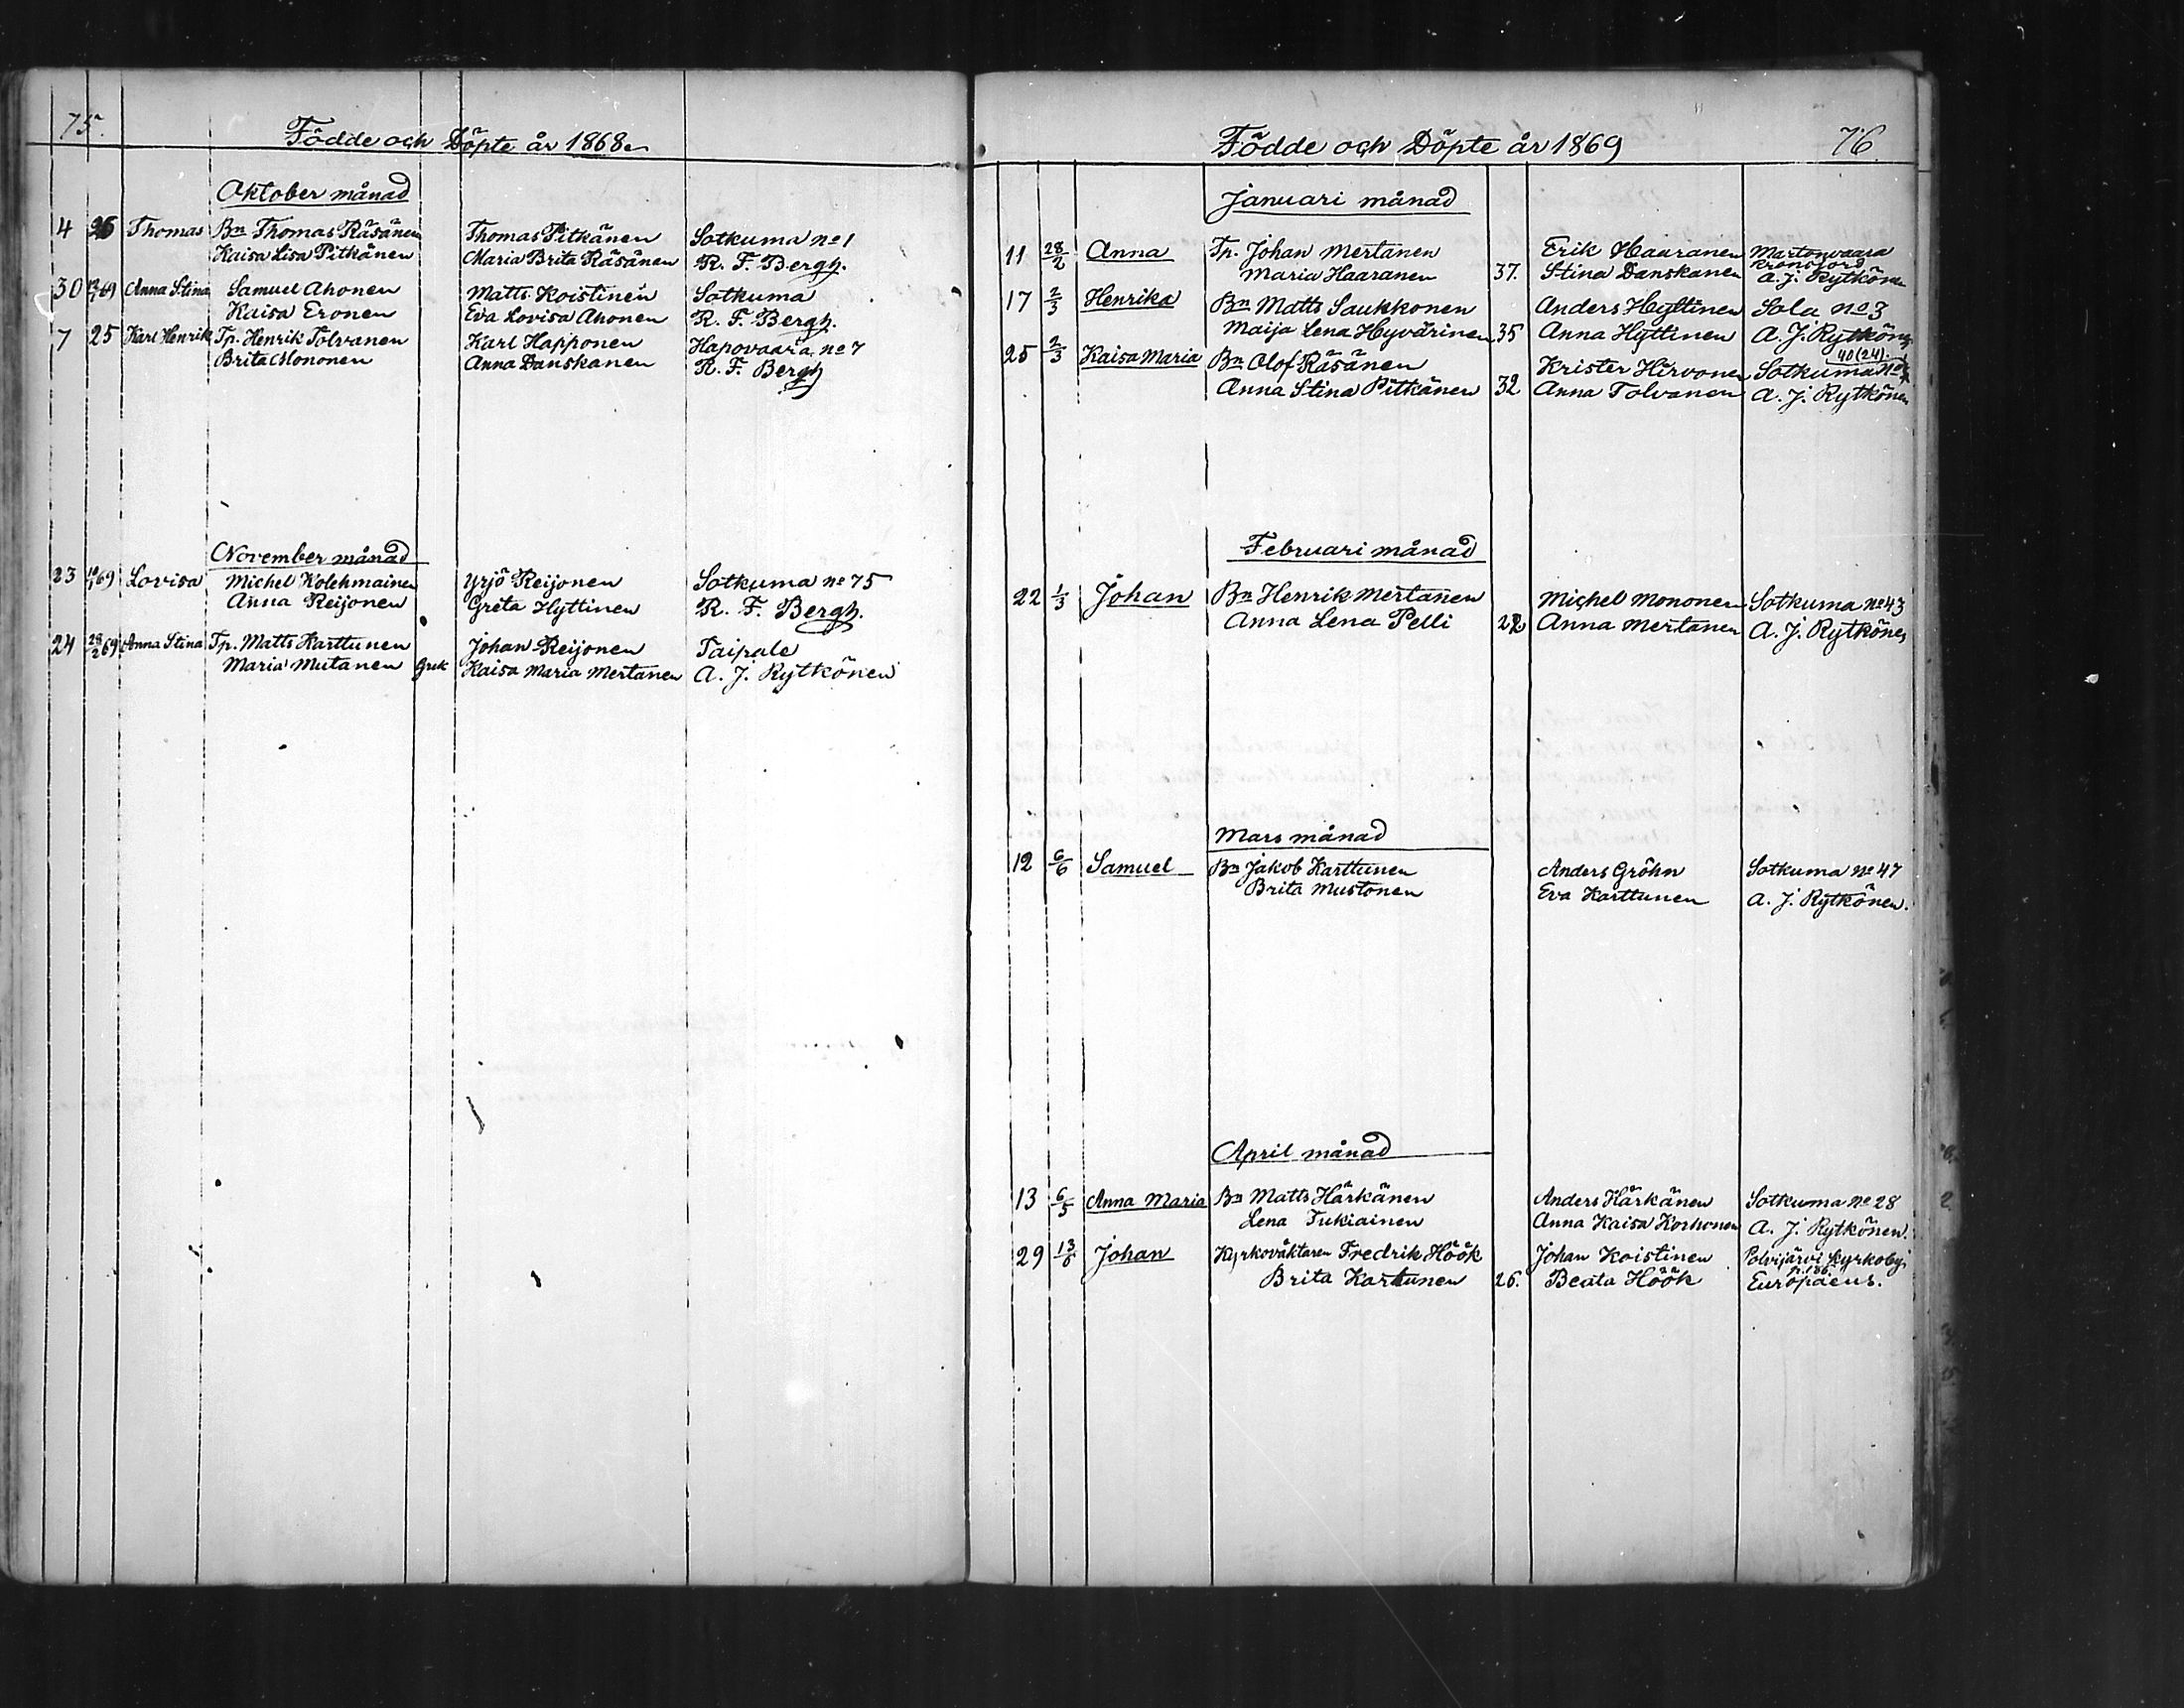 75.
Födde och Döpte år 1868
Oktober månad
4 26 Thomas Bn Thomas Räsänen Thomas Pitkänen Sotkuma no 1
Kaisa Lisa Pitkänen Maria Brita Räsänen R. F. Bergh.
30 69 Anna Stina Samuel Ahonen Matts Koistinen Sotkuma
Kaisa Eronen Eva Lovisa Ahonen R. F. Bergh.
7 25 Karl Henrik Tp. Henrik Tolvanen Karl Happonen Hapovaara no 7
Brita Mononen Anna Danskanen R. F. Bergh
November månad
23 69 Lovisa Michel Kolehmainen Yrjö Reijonen Sotkuma no 75
Anna Reijonen Greta Hyttinen R. F. Bergh.
24 28/2 69 Anna Stina Tp. Matts Karttunen Johan Reijonen Taipale
Maria Mutanen Grek Kaisa Maria Mertanen A. J. Rytkönen
Födde och Döpte år 1869 76
Januari månad
11 28/2 Anna Tp. Johan Mertanen Erik Haaranen Martonvaara
Kronojord
Maria Haaranen 37. Stina Danskanen A. J. Rytkönen
17 2/3 Henrika Bn Matts Saukkonen Anders Hyttinen Sola no 3
Maija Lena Hyvärinen 35 Anna Hyttinen A. J. Rytkönen
40 (24).
25 2/3 Kaisa Maria Bn Olof Räsänen Krister Hirvonen Sotkuma no
Anna Stina Pitkänen 32 Anna Tolvanen A. J. Rytkönen
Februari månad
22 1/3 Johan Bn Henrik Mertanen Michel Mononen Sotkuma no 43
Anna Lena Pelli Anna Mertanen A. J. Rytkönen
Mars månad
12 6/6 Samuel Bn Jakob Karttunen Anders Gröhn Sotkuma no 47
Brita Mustonen Eva Karttunen A. J. Rytkönen.
April månad
13 6/5 Anna Maria Bn Matts Härkänen Anders Härkänen Sotkuma no 28
Lena Tukiainen Anna Kaisa Korhonen A. J. Rytkönen.
29 13/6 Johan Kyrkoväktaren Fredrik Höök Johan Koistinen Polvijärvi Kyrkoby
Brita Kartunen 26. Beata Höök Europaeus.